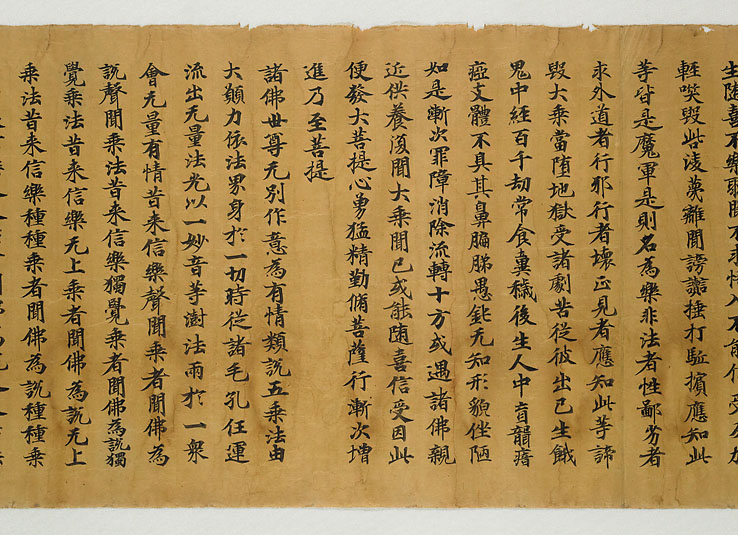 生随喜不樂聽聞不求悟入不能信受反加
輕咲毀呰淩蔑離間謗讟捶打駈擯應知此
等皆是魔軍是則名為樂非法者性鄙劣者
求外道者行邪行者壞正見者應知此等謗
毀大乘當堕地獄受諸劇苦從彼出已生餓
鬼中經百千劫常食糞穢後生人中盲聾瘖
瘂支體不具其鼻匾㔸愚鈍无知形貌矬陋
如是漸次罪障消除流轉十方或遇諸佛親
近供養復聞大乘聞已或能随喜信受因此
便發大菩提心勇猛精勤脩菩薩行漸次增
進乃至菩提
諸佛世尊无別作意為有情類說五乘法由
大願力依法界身於一切時從諸毛孔任運
流出无量法光以一妙音等澍法雨於一衆
會无量有情昔来信樂聲聞乘者聞佛為
說聲聞乘法昔来信樂獨覺乘者聞佛為說獨
覺乘法昔来信樂无上乘者聞佛為說无上
乘法昔来信樂種種乘者聞佛為說種種乘